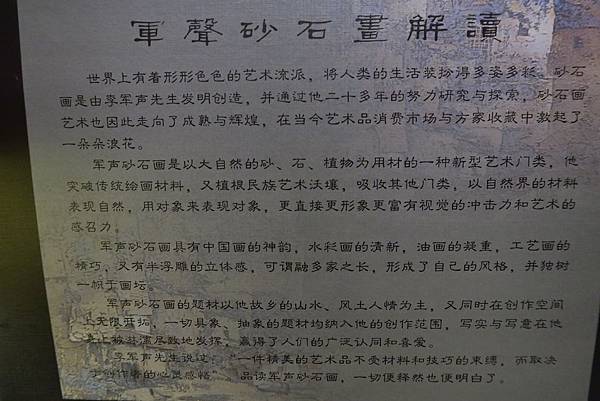 軍聲砂石畫解讀
世界上有着形形色色的艺术流派，将人类的生活装扮得多姿多彩。砂石
画是由李军声先生发明创造，并通过他二十多年的努力研究与探索，砂石画
艺术也因此走向了成熟与辉煌，在当今艺术品消费市场与方家收藏中激起了
一朵朵浪花。
军声砂石画是以大自然的砂、石、植物为用材的一种新型艺术门类，他
突破传统绘画材料，又植根民族艺术沃壤，吸收其他门类，以自然界的材料
表现自然，用对象来表现对象，更直接更形象更富有视觉的冲击力和艺术的
感召力。
军声砂石画具有中国画的神韵，水彩画的清新，油画的凝重，工艺画的
精巧，又有半浮雕的立体感，可谓融多家之长，形成了自己的风格，并独树
一帜于画坛。
军声砂石画的题材以他故乡的山水、风土人情为主，又同时在创作空间
上无限开拓，一切具象、抽象的题材均纳入他的创作范围，写实与写意在他
笔上被淋漓尽致地发挥，赢得了人们的广泛认同和喜爱。
李军声先生说过：“一件精美的艺术品不受材料和技巧的束缚，而取决
于创作者的心灵感悟”品读军声砂石画，一切便释然也便明白了。